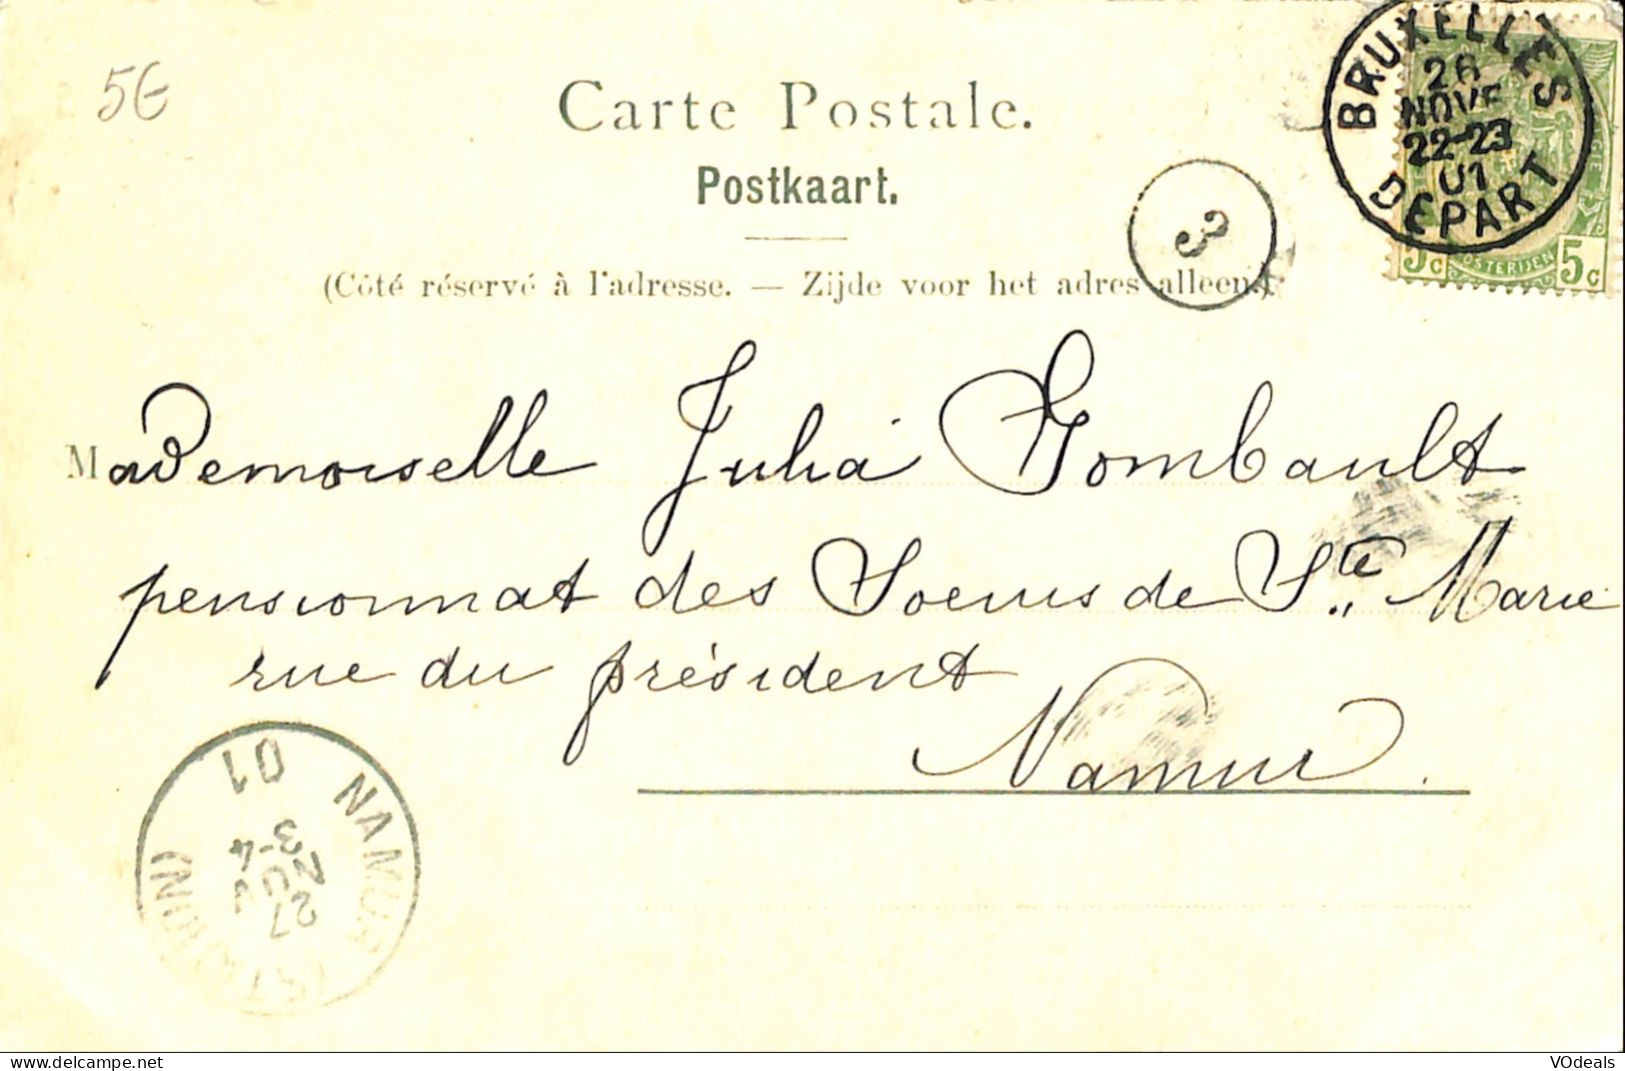 5€
Carte Postale.
Postkaart.
(Côté réservé à l'adresse. — Zijde voor het adres alleen.)
BRUXELLES
26
NOVE
22-23
01
DEPART
3
POSTERIJEN
5c 5c
Mademoiselle Julia Gombault
pensionnat des Soeurs de Ste Marie
rue du président
Namur.
NAMUR
27
NOV
3-4
01
VOdeals